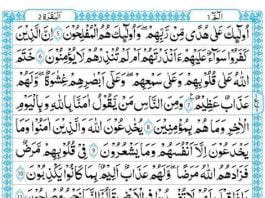 البقرة ٢ الٓمّٓ ١
اُولٰٓئِكَ عَلٰى هُدًى مِّنْ رَّبِّهِمْ ۙ وَاُولٰٓئِكَ هُمُ الْمُفْلِحُوْنَ ۝٥ اِنَّ الَّذِيْنَ
كَفَرُوْا سَوَآءٌ عَلَيْهِمْ ءَاَنْذَرْتَهُمْ اَمْ لَمْ تُنْذِرْهُمْ لَا يُؤْمِنُوْنَ ۝٦ خَتَمَ
اللّٰهُ عَلٰى قُلُوْبِهِمْ وَعَلٰى سَمْعِهِمْ ۭ وَعَلٰٓى اَبْصَارِهِمْ غِشَاوَةٌ ۡ وَّلَهُمْ
عَذَابٌ عَظِيْمٌ ۝٧ وَمِنَ النَّاسِ مَنْ يَّقُوْلُ اٰمَنَّا بِاللّٰهِ وَبِالْيَوْمِ
الْاٰخِرِ وَمَا هُمْ بِمُؤْمِنِيْنَ ۝٨ يُخٰدِعُوْنَ اللّٰهَ وَالَّذِيْنَ اٰمَنُوْا وَمَا
يَخْدَعُوْنَ اِلَّآ اَنْفُسَهُمْ وَمَا يَشْعُرُوْنَ ۝٩ فِيْ قُلُوْبِهِمْ مَّرَضٌ
فَزَادَهُمُ اللّٰهُ مَرَضًا ۚ وَلَهُمْ عَذَابٌ اَلِيْمٌۢ بِمَا كَانُوْا يَكْذِبُوْنَ ۝١٠